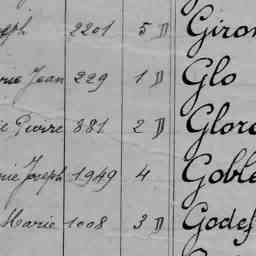 seph 2201 5 D Giron
rie Jean 229 1 D Glo
ie Pierre 881 2 D Glor
rie Joseph 1949 4 Goble
Marie 1008 3 D Godef